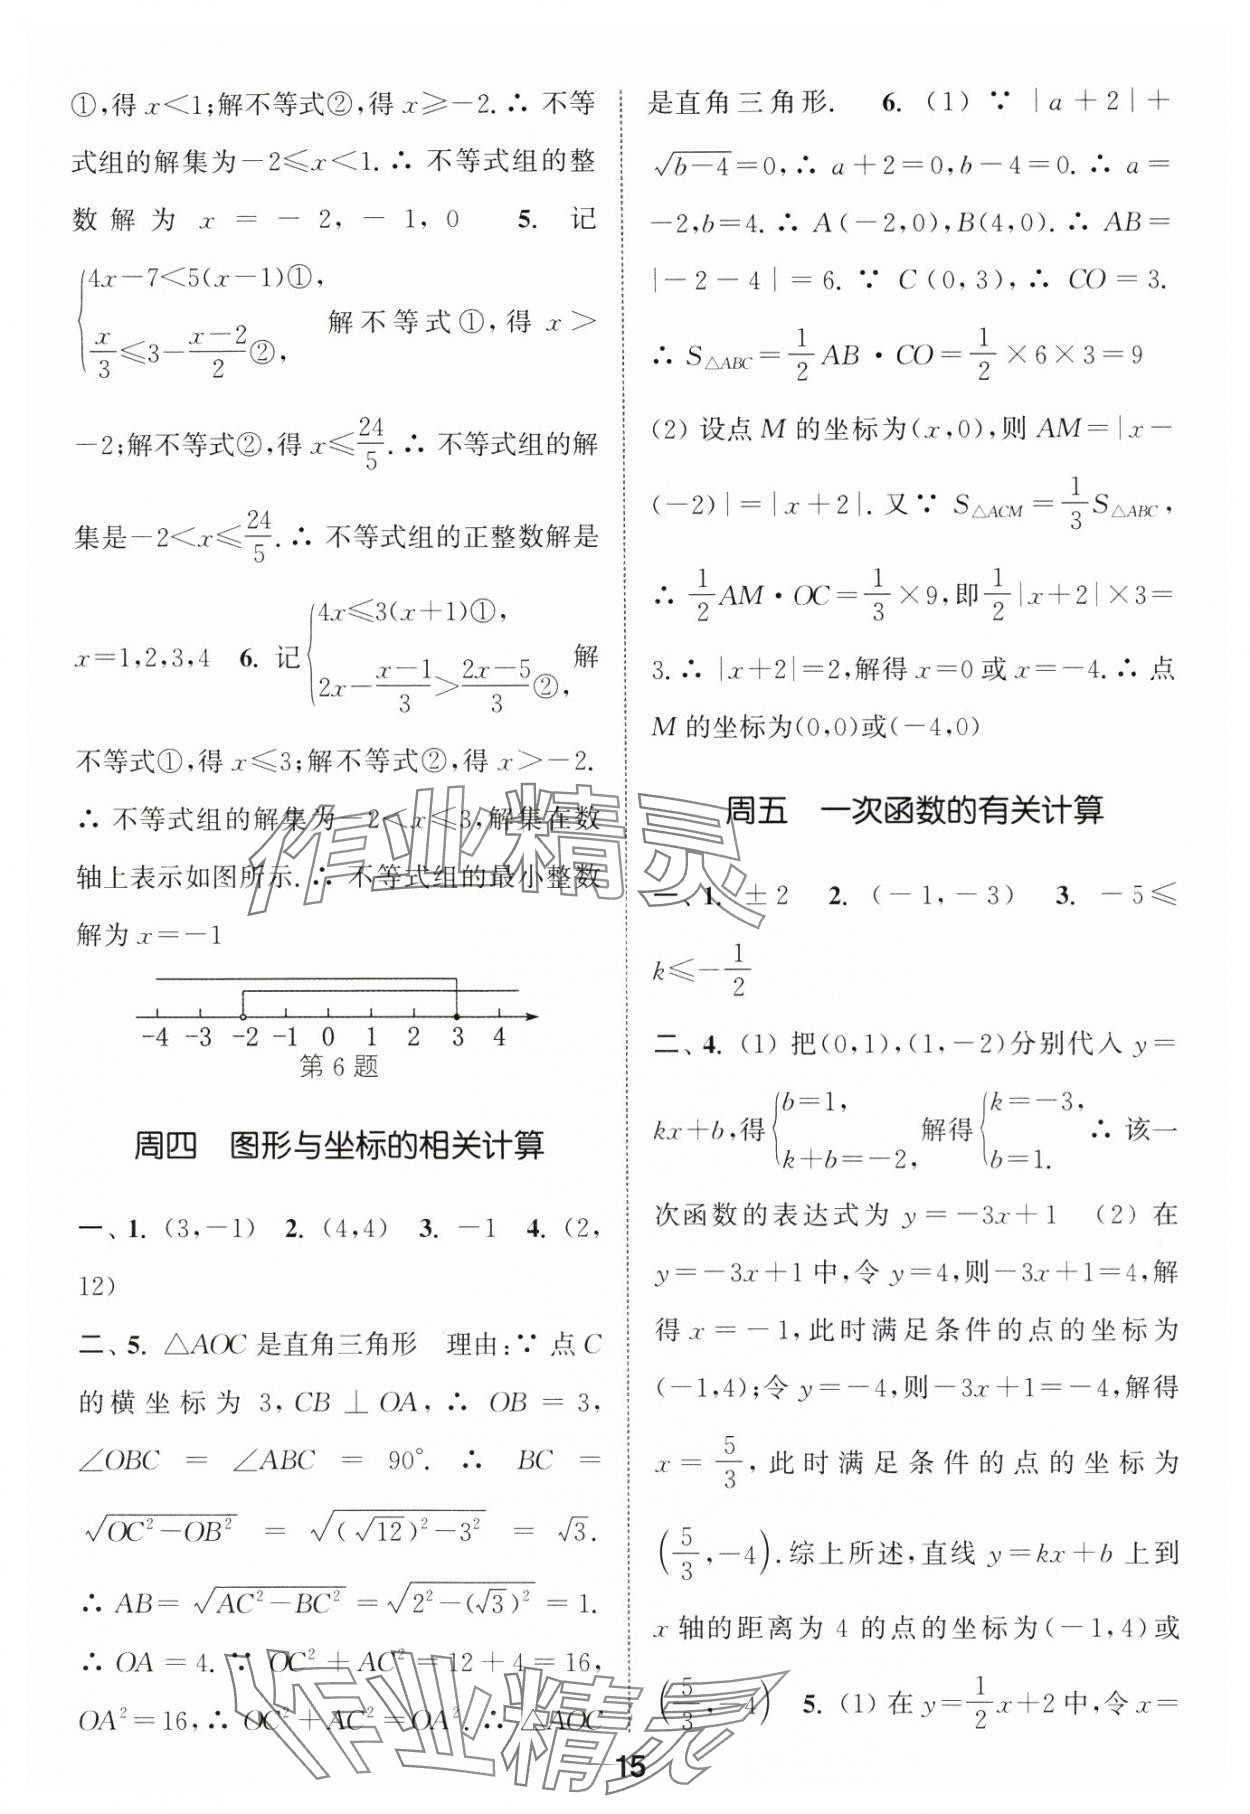 ①,得 x<1;解不等式②,得 x≥-2.∴ 不等
式组的解集为-2≤x<1.∴ 不等式组的整
数解为 x=-2,-1,0 5. 记
{4x-7<5(x-1)①,
x/3≤3-(x-2)/2②, 解不等式①,得 x>
-2;解不等式②,得 x≤24/5.∴ 不等式组的解
集是-2<x≤24/5.∴ 不等式组的正整数解是
x=1,2,3,4 6. 记{4x≤3(x+1)①,
2x-(x-1)/3>(2x-5)/3②, 解
不等式①,得 x≤3;解不等式②,得 x>-2.
∴ 不等式组的解集为-2<x≤3,解集在数
轴上表示如图所示.∴ 不等式组的最小整数
解为 x=-1
-4 -3 -2 -1 0 1 2 3 4
第 6 题
周四 图形与坐标的相关计算
一、1. (3,-1) 2. (4,4) 3. -1 4. (2,
12)
二、5. △AOC 是直角三角形 理由:∵ 点 C
的横坐标为 3,CB⊥OA,∴ OB=3,
∠OBC=∠ABC=90°.∴ BC=
√(OC²-OB²)=√((√12)²-3²)=√3.
∴ AB=√(AC²-BC²)=√(2²-(√3)²)=1.
∴ OA=4.∵ OC²+AC²=12+4=16,
OA²=16,∴ OC²+AC²=OA².∴ △AOC
是直角三角形. 6. (1) ∵ |a+2|+
√(b-4)=0,∴ a+2=0,b-4=0.∴ a=
-2,b=4.∴ A(-2,0),B(4,0).∴ AB=
|-2-4|=6.∵ C(0,3),∴ CO=3.
∴ S△ABC=1/2 AB·CO=1/2×6×3=9
(2) 设点 M 的坐标为(x,0),则 AM=|x-
(-2)|=|x+2|.又∵ S△ACM=1/3 S△ABC,
∴ 1/2 AM·OC=1/3×9,即1/2|x+2|×3=
3.∴ |x+2|=2,解得 x=0 或 x=-4.∴ 点
M 的坐标为(0,0)或(-4,0)
周五 一次函数的有关计算
一、1. ±2 2. (-1,-3) 3. -5≤
k≤-1/2
二、4. (1) 把(0,1),(1,-2)分别代入 y=
kx+b,得{b=1, k+b=-2, 解得{k=-3, b=1. ∴ 该一
次函数的表达式为 y=-3x+1 (2) 在
y=-3x+1 中,令 y=4,则-3x+1=4,解
得 x=-1,此时满足条件的点的坐标为
(-1,4);令 y=-4,则-3x+1=-4,解得
x=5/3,此时满足条件的点的坐标为
(5/3,-4).综上所述,直线 y=kx+b 上到
x 轴的距离为 4 的点的坐标为(-1,4)或
(5/3,-4) 5. (1) 在 y=1/2 x+2 中,令 x=
15
作业精灵
作业精灵